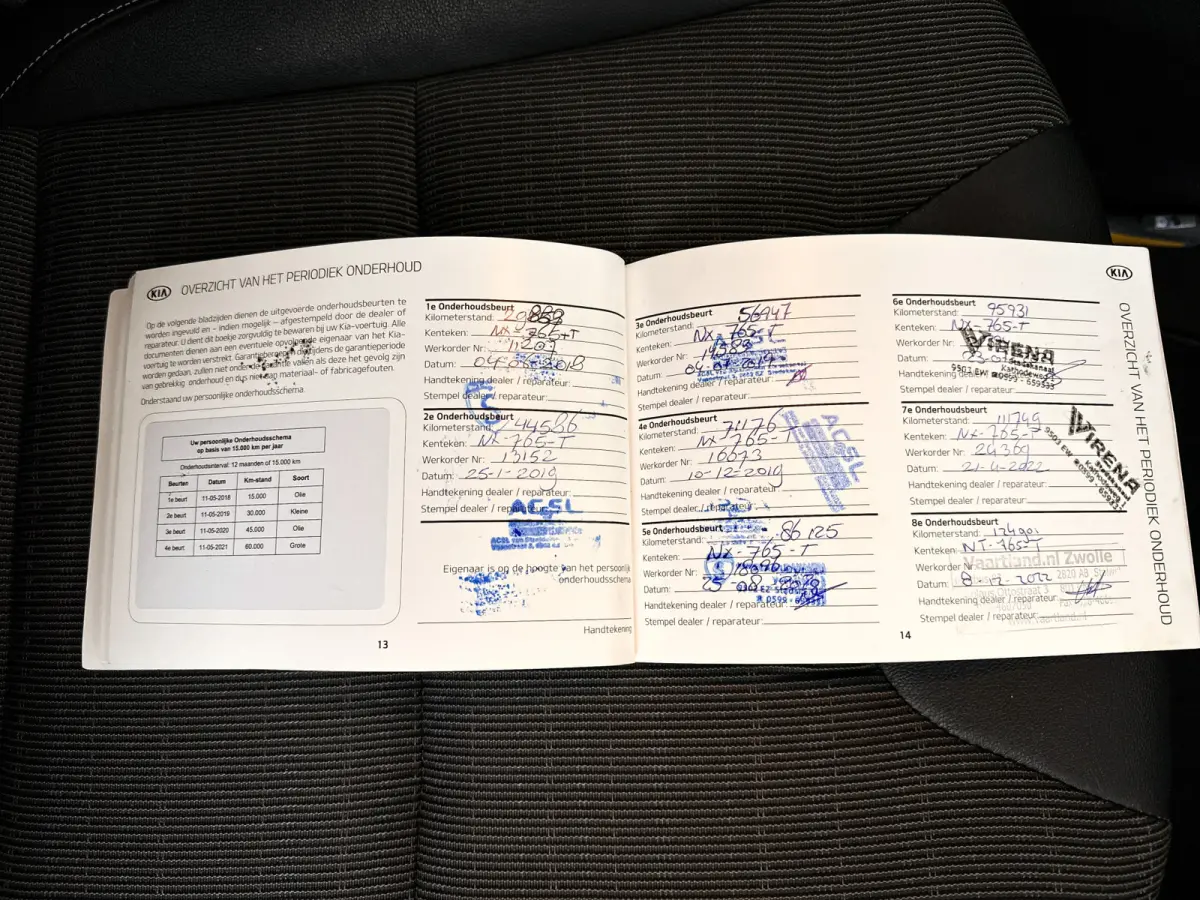 KIA OVERZICHT VAN HET PERIODIEK ONDERHOUD
Op de volgende bladzijden dienen de uitgevoerde onderhoudsbeurten te
worden ingevuld en – indien mogelijk – afgestempeld door de dealer of
reparateur. U dient dit boekje zorgvuldig te bewaren bij uw Kia-voertuig. Alle
documenten dienen aan een eventuele opvolgende eigenaar van het Kia-
voertuig te worden verstrekt. tijdens de garantieperiode
worden gedaan, zullen niet onder de vallen als deze het gevolg zijn
van gebrekkig onderhoud en dus niet aan materiaal- of fabricagefouten.
Onderstaand uw persoonlijke onderhoudsschema.
Uw persoonlijke Onderhoudsschema
op basis van 15.000 km per jaar
Onderhoudsinterval: 12 maanden of 15.000 km
Beurten Datum Km-stand Soort
1e beurt 11-05-2018 15.000 Olie
2e beurt 11-05-2019 30.000 Kleine
3e beurt 11-05-2020 45.000 Olie
4e beurt 11-05-2021 60.000 Grote
13
1e Onderhoudsbeurt
Kilometerstand:
Kenteken: NX-765-T
Werkorder Nr:
Datum: 2018
Handtekening dealer / reparateur:
Stempel dealer / reparateur:
2e Onderhoudsbeurt
Kilometerstand: 44586
Kenteken: NX-765-T
Werkorder Nr: 13152
Datum: 25-1-2019
Handtekening dealer / reparateur:
Stempel dealer / reparateur:
ACSL
Eigenaar is op de hoogte van het persoonlijk
onderhoudsschema
Handtekening
3e Onderhoudsbeurt
Kilometerstand: 56947
Kenteken: NX-765-T
Werkorder Nr:
Datum:
Handtekening dealer / reparateur:
Stempel dealer / reparateur:
4e Onderhoudsbeurt
Kilometerstand: 71176
Kenteken: NX-765-T
Werkorder Nr: 16673
Datum: 10-12-2019
Handtekening dealer / reparateur:
Stempel dealer / reparateur:
ACSL
5e Onderhoudsbeurt
Kilometerstand: 86125
Kenteken: NX-765-T
Werkorder Nr:
Datum: 25-08-2020
Handtekening dealer / reparateur:
0599 - 659333
Stempel dealer / reparateur:
14
6e Onderhoudsbeurt
Kilometerstand: 95931
Kenteken: NX-765-T
Werkorder Nr:
Datum:
Handtekening dealer / reparateur:
Stempel dealer / reparateur:
VIRENA
Kathodeweg
9503 EW 0599 - 659333
7e Onderhoudsbeurt
Kilometerstand: 111749
Kenteken: NX-765-T
Werkorder Nr: 24369
Datum: 21-4-2022
Handtekening dealer / reparateur:
Stempel dealer / reparateur:
VIRENA
Kathodeweg
9503 EW 0599 - 659333
8e Onderhoudsbeurt
Kilometerstand:
Kenteken: NT-765-T
Werkorder Nr
Datum: 8-12-2022
Handtekening dealer / reparateur
Stempel dealer / reparateur:
Vaartland.nl Zwolle
KIA
OVERZICHT VAN HET PERIODIEK ONDERHOUD